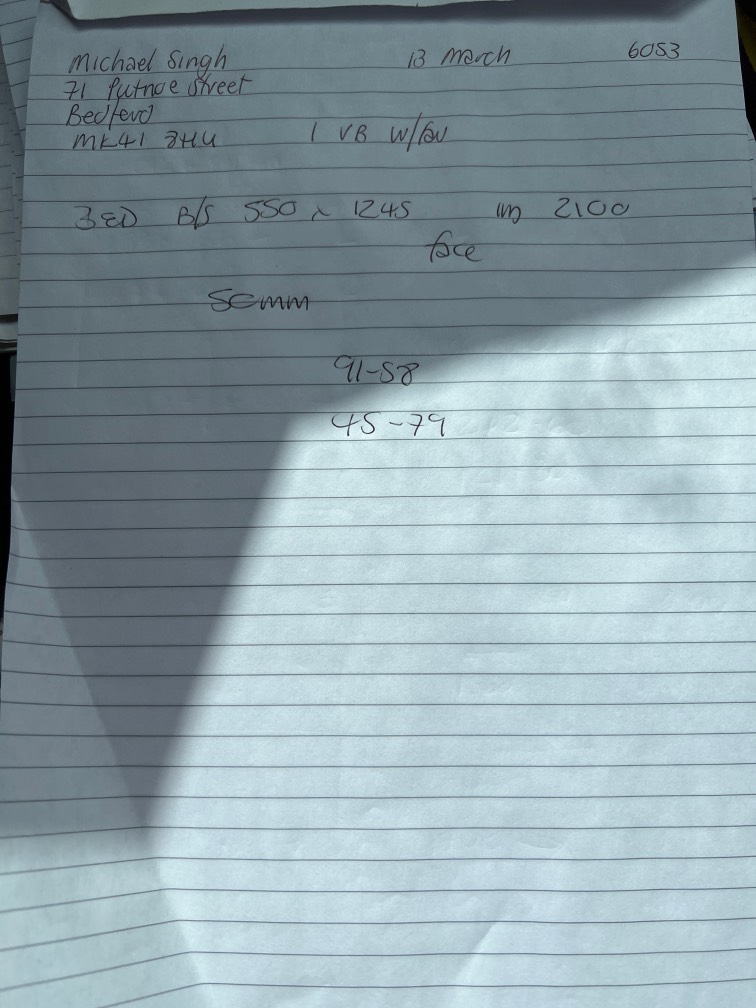 Michael Singh 13 March 6053
71 Putnoe Street
Bedford
MK41 8HU 1 VB W/
BED B/S 550 x 1245 2100
face
50mm
91-58
45-79